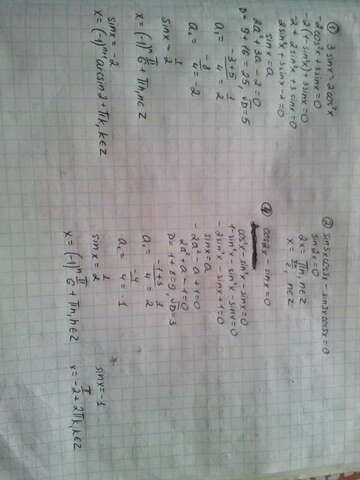 ① 3sinx = 2cos²x
-2cos²x + 3sinx = 0
-2(1-sin²x) + 3sinx = 0
-2 + 2sin²x + 3sinx = 0
2sin²x + 3sinx - 2 = 0
sinx = a
2a² + 3a - 2 = 0
D = 9 + 16 = 25, √D = 5
a₁ = (-3+5)/4 = 1/2
a₂ = -8/4 = -2
sinx = 1/2
x = (-1)ⁿ π/6 + πn, n∈Z
sinx = -2
x = (-1)ᵏ⁺¹ arcsin2 + πk, k∈Z
② sin5x cos3x - sin3x cos5x = 0
sin2x = 0
2x = πn, n∈Z
x = πn/2, n∈Z
③ cos2x - sinx = 0
cos²x - sin²x - sinx = 0
1 - sin²x - sin²x - sinx = 0
-2sin²x - sinx + 1 = 0
sinx = a
-2a² - a + 1 = 0
2a² + a - 1 = 0
D = 1 + 8 = 9 √D = 3
a₁ = (-1+3)/4 = 1/2
a₂ = -4/4 = -1
sinx = 1/2
x = (-1)ⁿ π/6 + πn, n∈Z
sinx = -1
x = -π/2 + 2πk, k∈Z